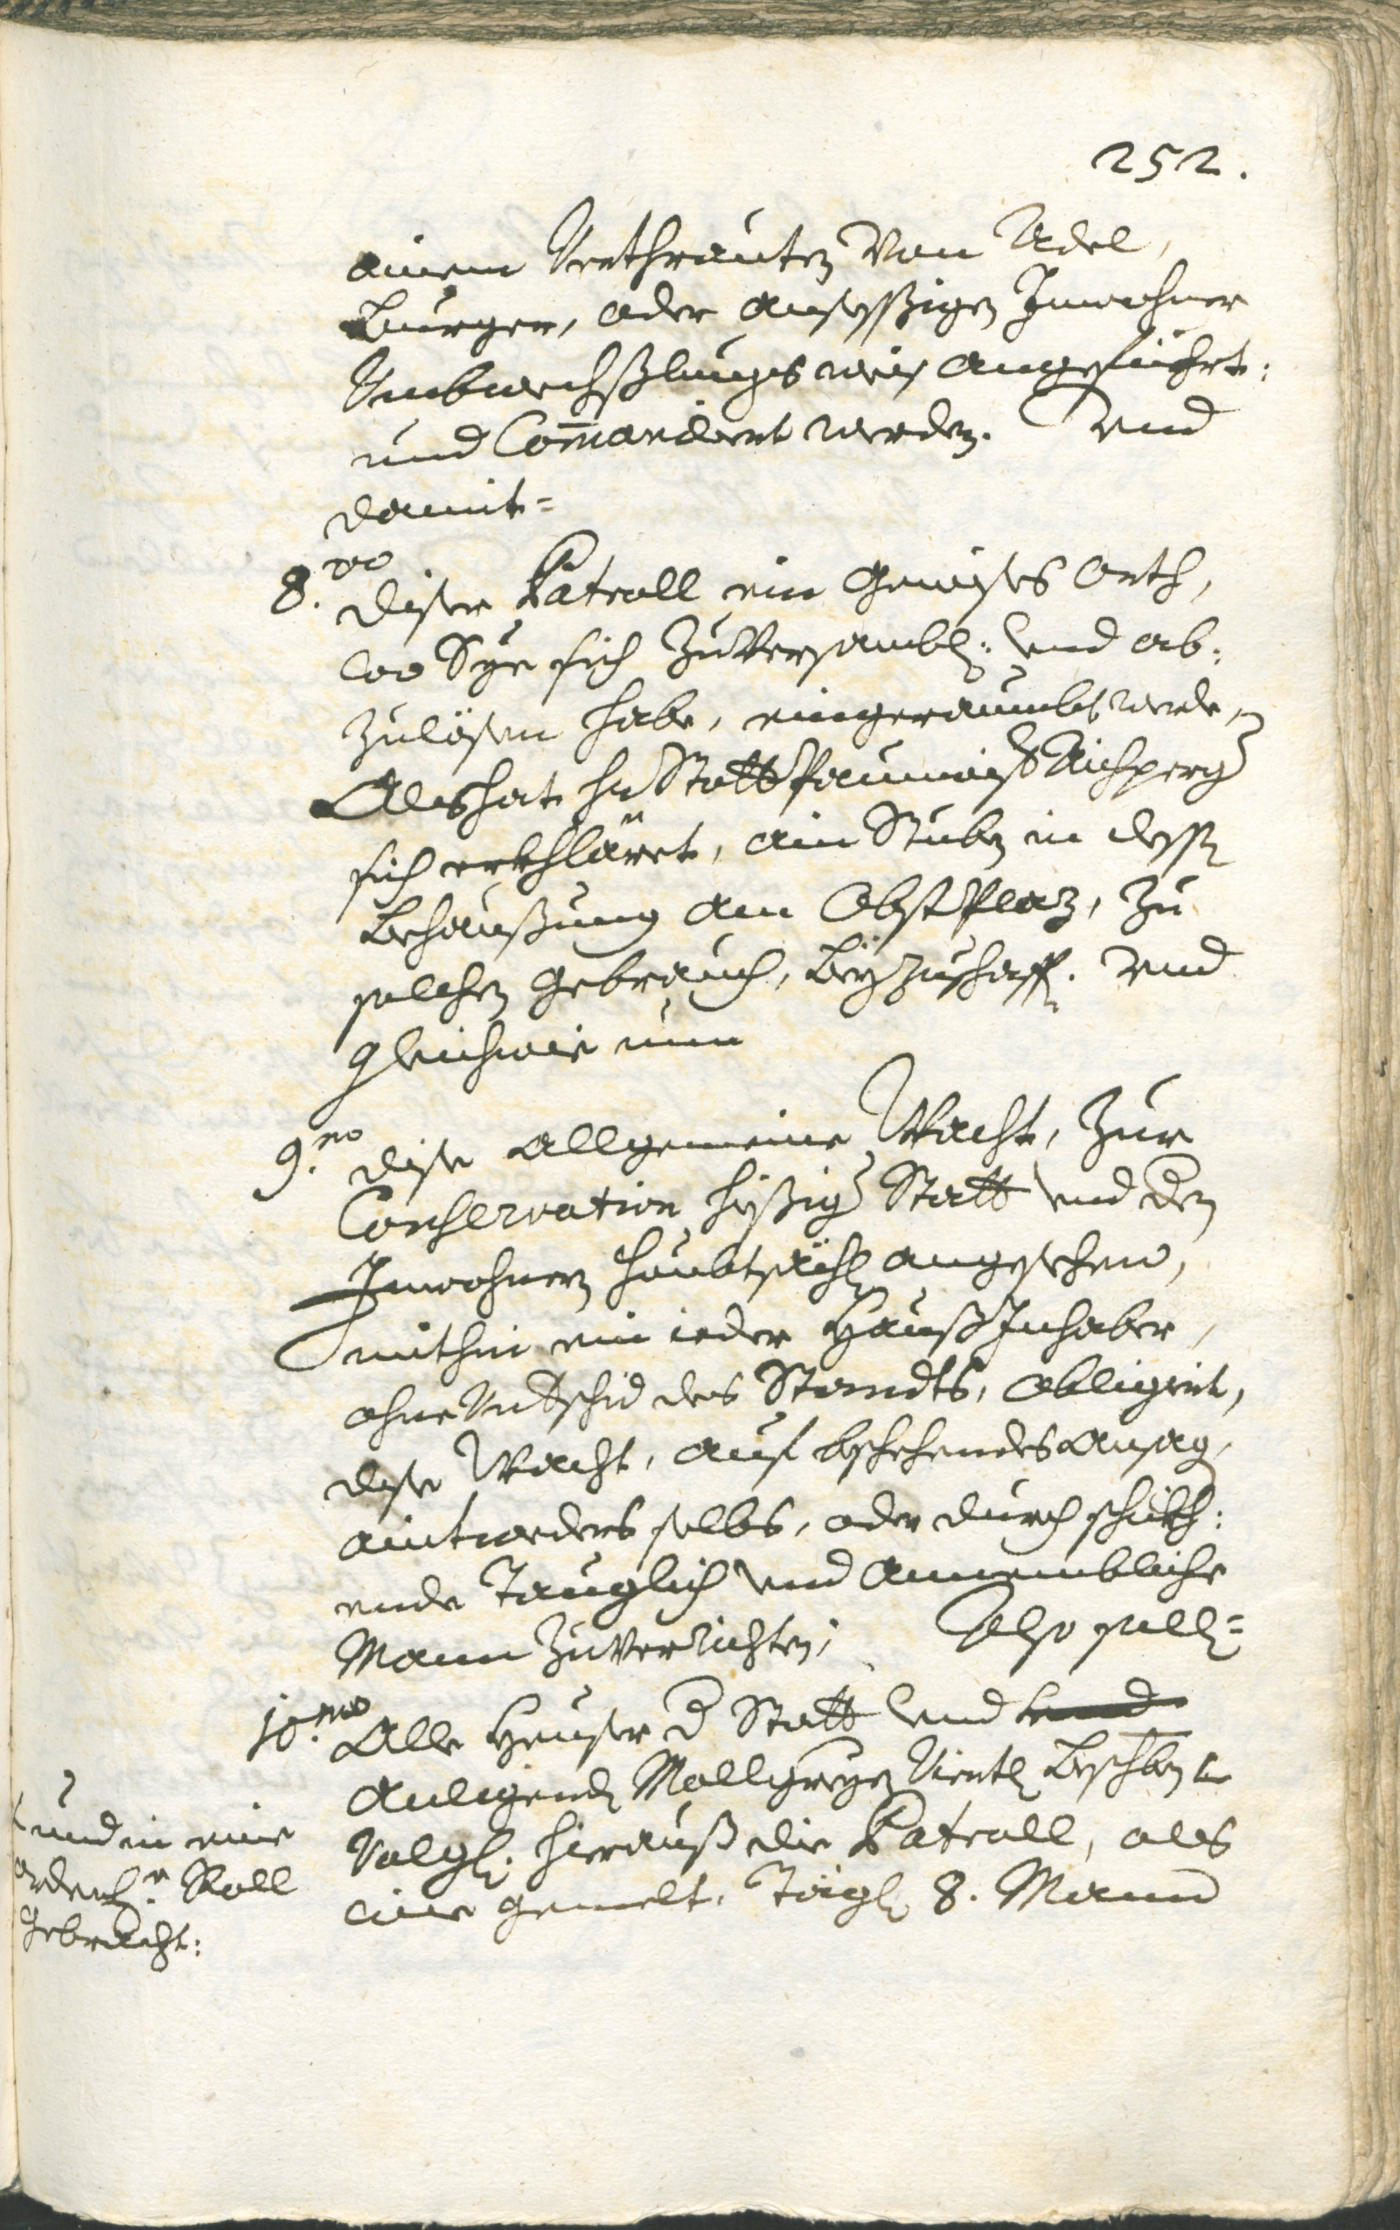 252.
ainem Verthrauten Von Adel,
Burger, oder ansessigen Inwohner
Umbwechßlungs weis angeführt:
und Com̄andiert werden. Und
damit=
8.vo diser Patroll ein gewises Orth,
wo Sye sich zuversambl: und ab:
zulösen habe, eingeraumbt werde,
Als hat hr Statt Paumaist Aichperg
sich erkhläret, ain Stuben in dessen
Behaußung am Obst Plaz, zu
solchen gebrauch, beyzuschaffen. Und
gleichwie nun
9.no dise allgemeine Wacht, zur
Conservation hießig Statt und den
Inwohnern haubtsächl angesehen,
mithin ein ieder Hauß Inhaber,
ohne Undschid des Standts, obligirt,
dise Wacht, auf beschehendes ansag,
aintweders selbs, oder durch schikh:
ende Tauglich und annembliche
Mann zuverrichten; Also sollen=
10.mo Alle Heuser d Statt und
anligend Mallgreyen Viertl beschriben
Volgl: hierauß die Patroll, als
wie gemelt, Tägl 8. Mann
und in eine
ordenl.r Roll
gebracht: